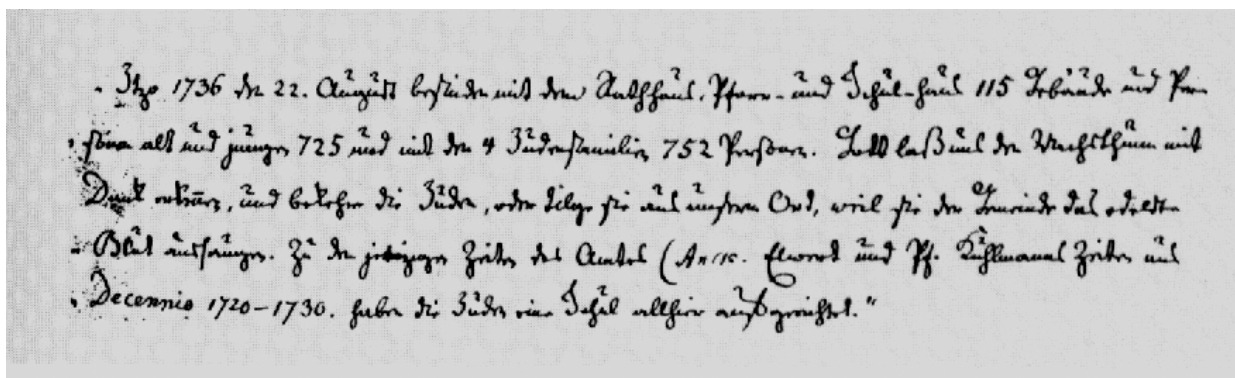 „Itzo 1736 den 22. August befinden mit dem Rathhaus, Pfarr- und Schul-haus 115 Gebäude und Per-
„sonen alt und junge 725 und mit den 4 Judenfamilien 752 Personen. Gott laß uns den Wachsthum mit
„Dank erkennen, und bekehre die Juden, oder tilge sie aus unserem Ort, weil sie der Gemeinde das edelste
„Blut aussaugen. Zu den jetzigen Zeiten des Amtes ( Elwert und Pf. Kuhlmanns Zeiten aus
„Decennio 1720–1730. haben die Juden eine Schul allhier aufgerichtet.“